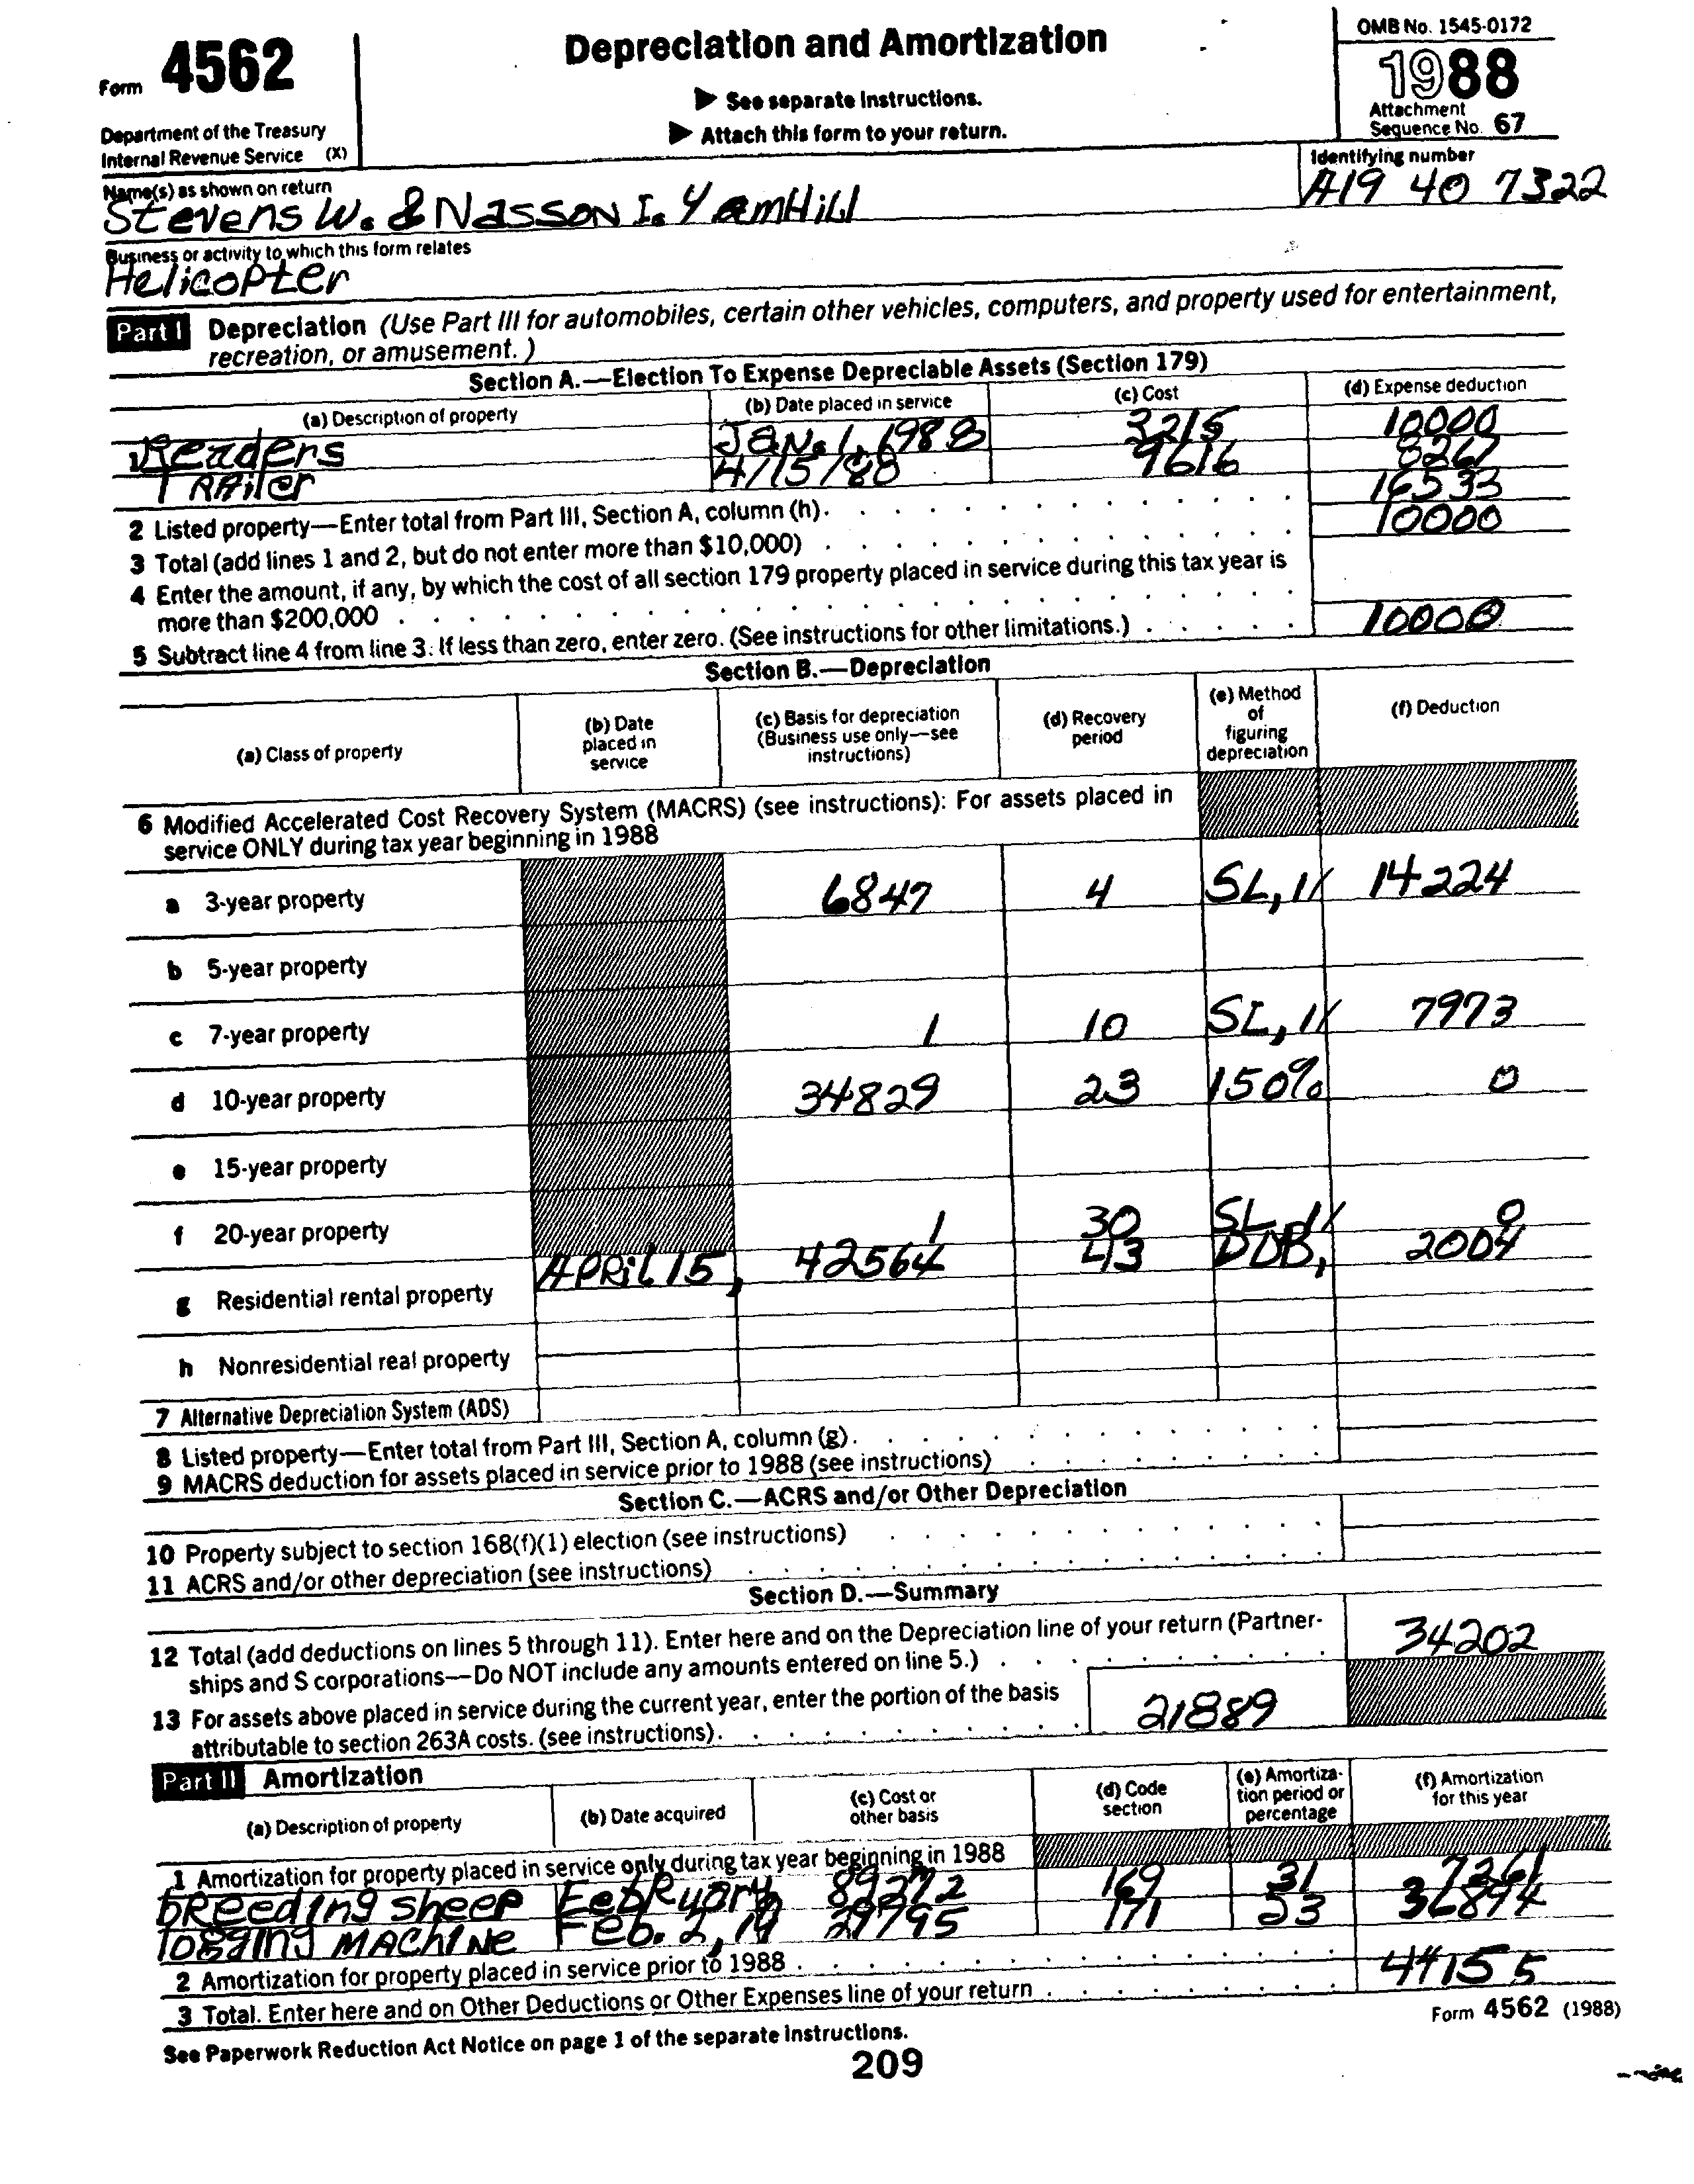 Form 4562
Department of the Treasury
Internal Revenue Service (X)
Depreciation and Amortization
▶ See separate Instructions.
▶ Attach this form to your return.
OMB No. 1545-0172
1988
Attachment
Sequence No. 67
Name(s) as shown on return
Stevens W. & Nasson I. YamHill
Identifying number
A19 40 7322
Business or activity to which this form relates
Helicopter
Part I Depreciation (Use Part III for automobiles, certain other vehicles, computers, and property used for entertainment,
recreation, or amusement.)
Section A.—Election To Expense Depreciable Assets (Section 179)
(a) Description of property (b) Date placed in service (c) Cost (d) Expense deduction
1 Readers Jan. 1, 1988 3215 10000
Trailer 4/15/88 9616 8267
2 Listed property—Enter total from Part III, Section A, column (h). 16533
3 Total (add lines 1 and 2, but do not enter more than $10,000) 10000
4 Enter the amount, if any, by which the cost of all section 179 property placed in service during this tax year is
more than $200,000
5 Subtract line 4 from line 3. If less than zero, enter zero. (See instructions for other limitations.) 10000
Section B.—Depreciation
(a) Class of property
(b) Date placed in service
(c) Basis for depreciation (Business use only—see instructions)
(d) Recovery period
(e) Method of figuring depreciation
(f) Deduction
6 Modified Accelerated Cost Recovery System (MACRS) (see instructions): For assets placed in
service ONLY during tax year beginning in 1988
a 3-year property 6847 4 SL, 1/ 14224
b 5-year property
c 7-year property 1 10 SL, 1/ 7973
d 10-year property 34829 23 150% 0
e 15-year property
f 20-year property 1 30 SL, 1/ 0
g Residential rental property April 15, 42564 43 DDB, 2004
h Nonresidential real property
7 Alternative Depreciation System (ADS)
8 Listed property—Enter total from Part III, Section A, column (g).
9 MACRS deduction for assets placed in service prior to 1988 (see instructions)
Section C.—ACRS and/or Other Depreciation
10 Property subject to section 168(f)(1) election (see instructions)
11 ACRS and/or other depreciation (see instructions)
Section D.—Summary
12 Total (add deductions on lines 5 through 11). Enter here and on the Depreciation line of your return (Partner-
ships and S corporations—Do NOT include any amounts entered on line 5.) 34202
13 For assets above placed in service during the current year, enter the portion of the basis
attributable to section 263A costs. (see instructions). 21889
Part II Amortization
(a) Description of property
(b) Date acquired
(c) Cost or other basis
(d) Code section
(e) Amortization period or percentage
(f) Amortization for this year
1 Amortization for property placed in service only during tax year beginning in 1988
breeding sheep February 89272 169 31 7261
logging machine Feb. 2, 19 29795 171 53 36894
2 Amortization for property placed in service prior to 1988
3 Total. Enter here and on Other Deductions or Other Expenses line of your return 44155
See Paperwork Reduction Act Notice on page 1 of the separate Instructions.
Form 4562 (1988)
209